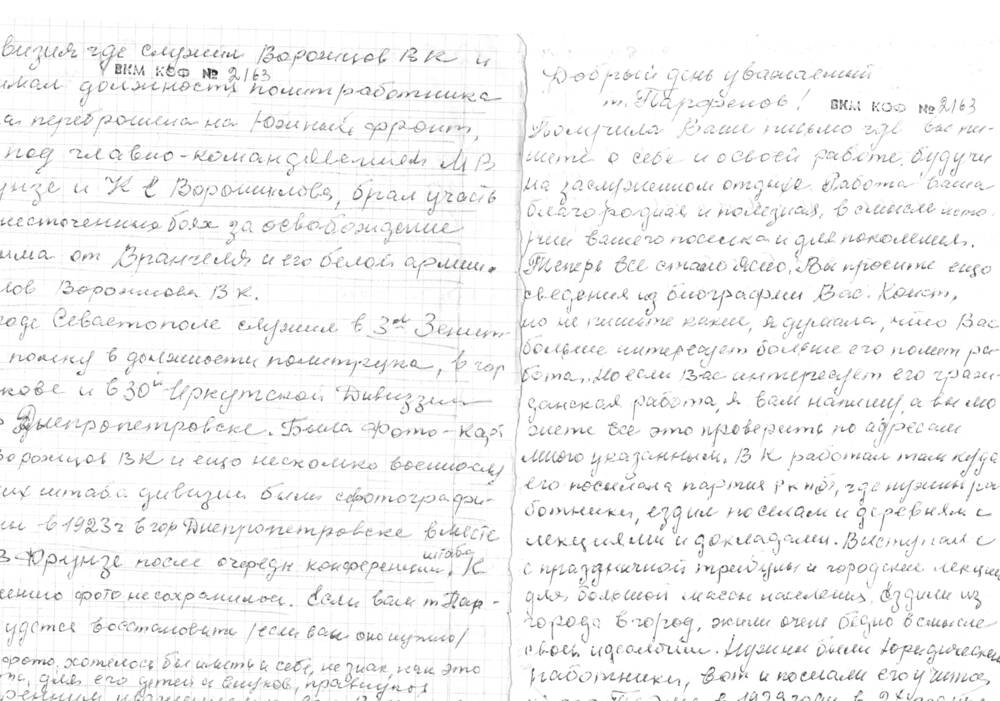 визия где служил Ворожцов В К и
ВКМ КОФ № 2163
имал должность политработника
ла переброшена на Южный фронт,
под главно-командованием М В
унзе и К Е Ворошилова, брал участь
жесточенных боях за освобождение
ыма от Вранчеля и его белой армии.
лов Ворожцова В К.
городе Севастополе служил в 3ей Зенит-
полку в должности политрука, в гор
кове и в 30й Иркутской Дивиззии
Днепропетровске. Была фото-карт
Ворожцов В К и ещо несколко военнослу
их штаба дивизии были сфотографи-
ли в 1923 г в гор Днепропетровске вместе
В Фрунзе после очередн конференции штаба. К
лению фото несохранилось. Если вам т Пар-
удется восстановить /если вам оно нужно/
фото, хотелось бы иметь и себе, не знак, как это
для его детей и внуков, правнуков
Добрый день уважаемый
т. Парфенов!
ВКМ КОФ № 2163
Получила Ваше письмо где вы пи-
шете о себе и освоей работе, будучи
на заслуженном отдыхе. Работа ваша
благородная и полезная, в смысле исто-
рии вашего поселка и для поколения.
Теперь все стало ясно. Вы просите ещо
сведения из биографии Вас. Конст,
но не пишите какие, я думала, что Вас
больше интересует больше его полит ра-
бота. Но если Вас интересует его граж-
данская работа, я вам напишу, а вы мо
жете все это проверить по адресам
мною указанным. В К работал там куда
его посылала партия, где нужны ра
ботники, ездил поселам и деревням с
лекциями и докладами. Выступал с
с праздничной трибуны и городские лекции
для большой массы населения. Ездили из
города в город, жили очень бедно в смысле
своей идеологии. Нужны были Юридические
работники, вот и послали его учится